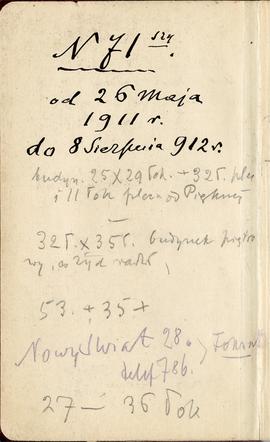 N 71 szy
od 26 Maja
1911 r.
do 8 Sierpnia 912 r.
budyn. 25 X 29 łok. + 32 ł. plac
i 11 łok plac od Pięknej
—
32 ł. X 35 ł. budynek piętro
wy, co żyd
53. + 35 +
Nowy Świat 28.
telef 786.
27 — 36 łok